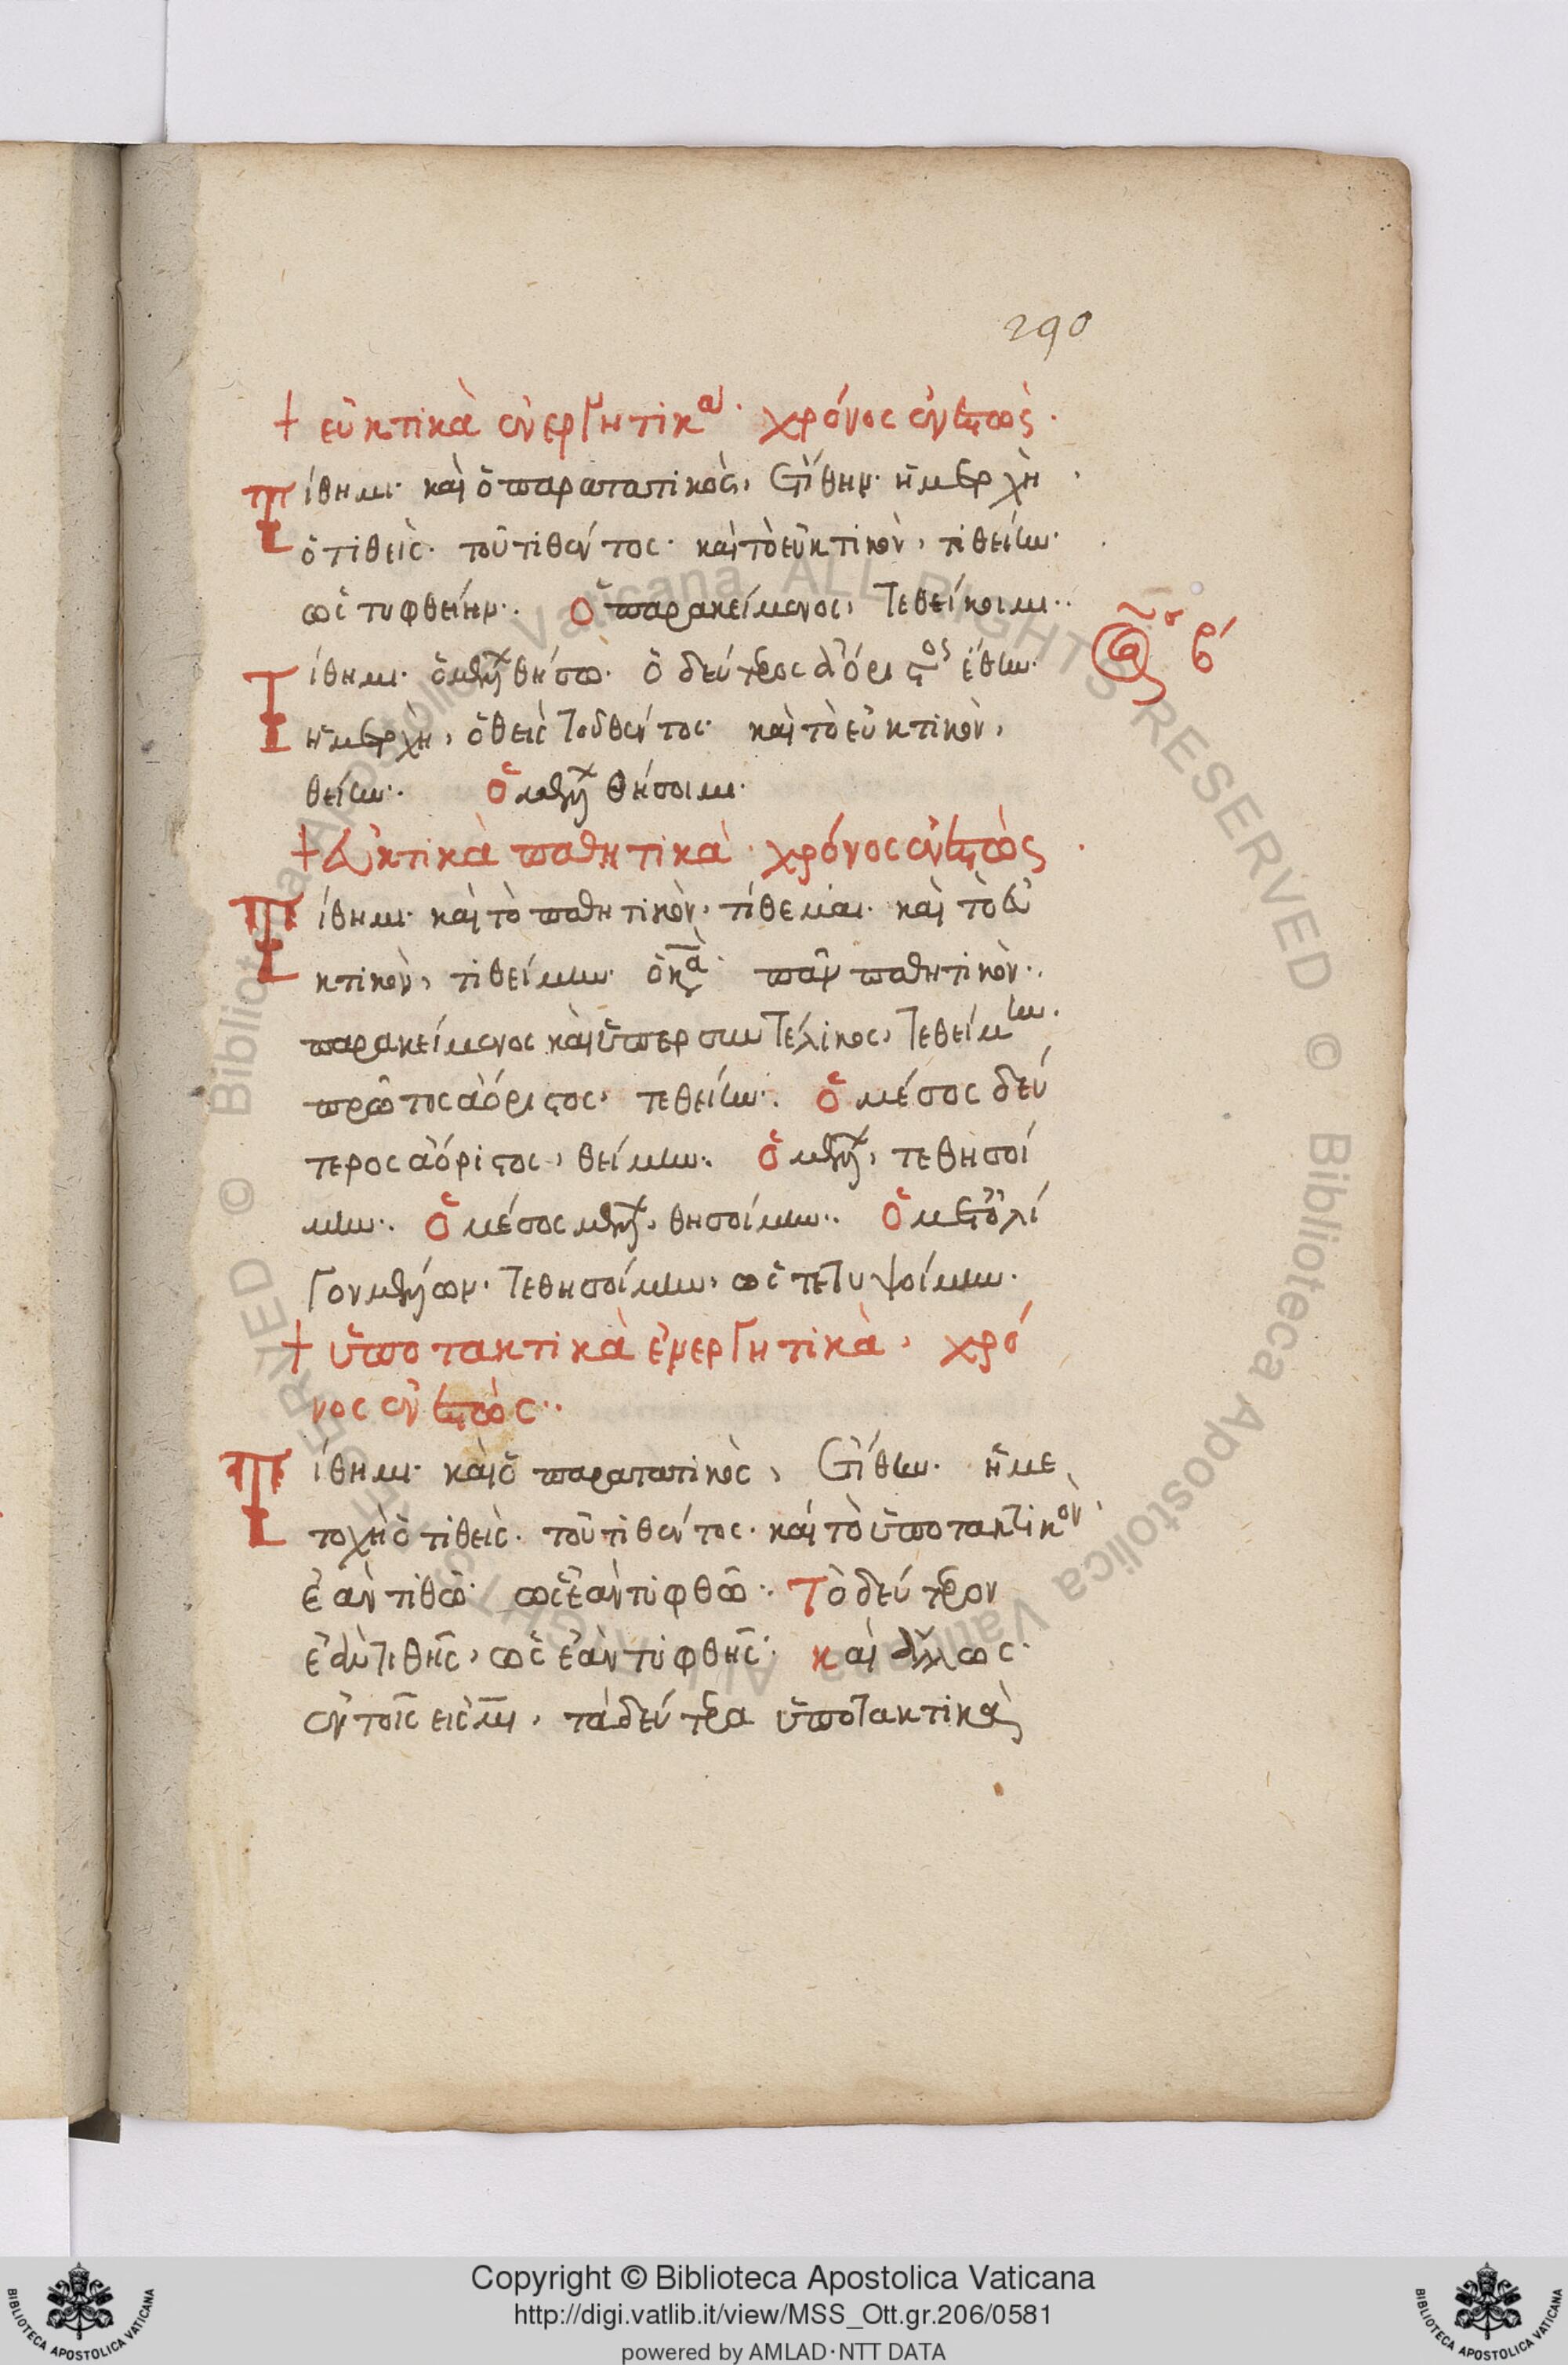 290
+ εὐκτικὰ ἐνεργητικά· χρόνος ἐνεστώς·
Τίθημι· καὶ ὁ παρατατικὸς, ἐτίθην· ἡ μετοχὴ
ὁ τιθεὶς· τοῦ τιθέντος· καὶ τὸ εὐκτικὸν, τιθείην·
ὡς τυφθείην·. ὁ παρακείμενος, τεθείκοιμι··
Τίθημι· ὁ μέλλων θήσω· ὁ δεύτερος ἀόριστος ἔθην·
ἡ μετοχὴ, ὁ θεὶς τοῦ θέντος· καὶ τὸ εὐκτικὸν,
θείην·. ὁ μέλλων θήσοιμι·
+ εὐκτικὰ παθητικὰ· χρόνος ἐνεστὼς
Τίθημι· καὶ τὸ παθητικὸν, τίθεμαι· καὶ τὸ εὐ
κτικὸν, τιθείμην· παθητικὸν·.
παρακείμενος καὶ ὑπερσυντέλικος, τεθείμην·
πρῶτος ἀόριστος, τεθείην·. ὁ μέσος δεύ
τερος ἀόριστος, θείμην·. ὁ μέλλων, τεθησοί
μην·. ὁ μέσος μέλλων, θησοίμην·. ὁ μετ' ὀλί
γον μέλλων· τεθησοίμην, ὡς τετυψοίμην·
+ ὑποτακτικὰ ἐνεργητικὰ, χρό
νος ἐνεστὼς··
Τίθημι· καὶ ὁ παρατατικὸς, ἐτίθην· ἡ με
τοχὴ ὁ τιθεὶς· τοῦ τιθέντος· καὶ τὸ ὑποτακτικὸν
ἐὰν τιθῶ· ὡς ἐὰν τυφθῶ·. Τὸ δεύτερον
ἐὰν τιθῆς, ὡς ἐὰν τυφθῆς· καὶ ἄλλως·
ἐν τοῖς εἰς μι, τὰ δεύτερα ὑποτακτικὰ
Copyright © Biblioteca Apostolica Vaticana
http://digi.vatlib.it/view/MSS_Ott.gr.206/0581
powered by AMLAD·NTT DATA
BIBLIOTECA APOSTOLICA VATICANA
BIBLIOTECA APOSTOLICA VATICANA
© Biblioteca Apostolica Vaticana ALL RIGHTS RESERVED © Biblioteca Apostolica Vaticana ALL RIGHTS RESERVED